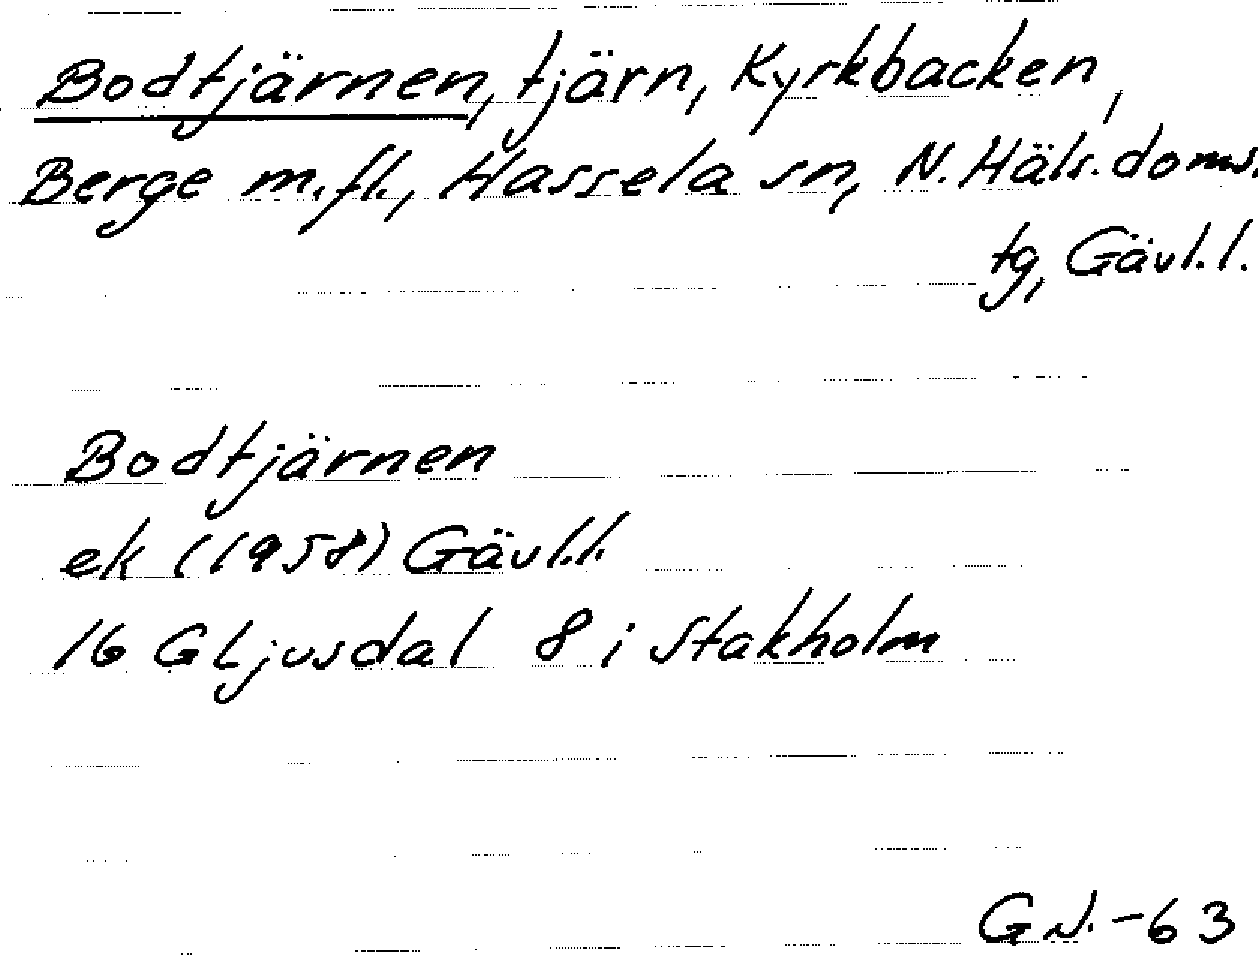 Bodtjärnen, tjärn, Kyrkbacken,
Berge m.fl., Hassela sn, N. Häls. doms.
tg, Gävl.l.
Bodtjärnen
ek (1958) Gävl.l.
16 G Ljusdal 8 i Stakholm
GN.-63